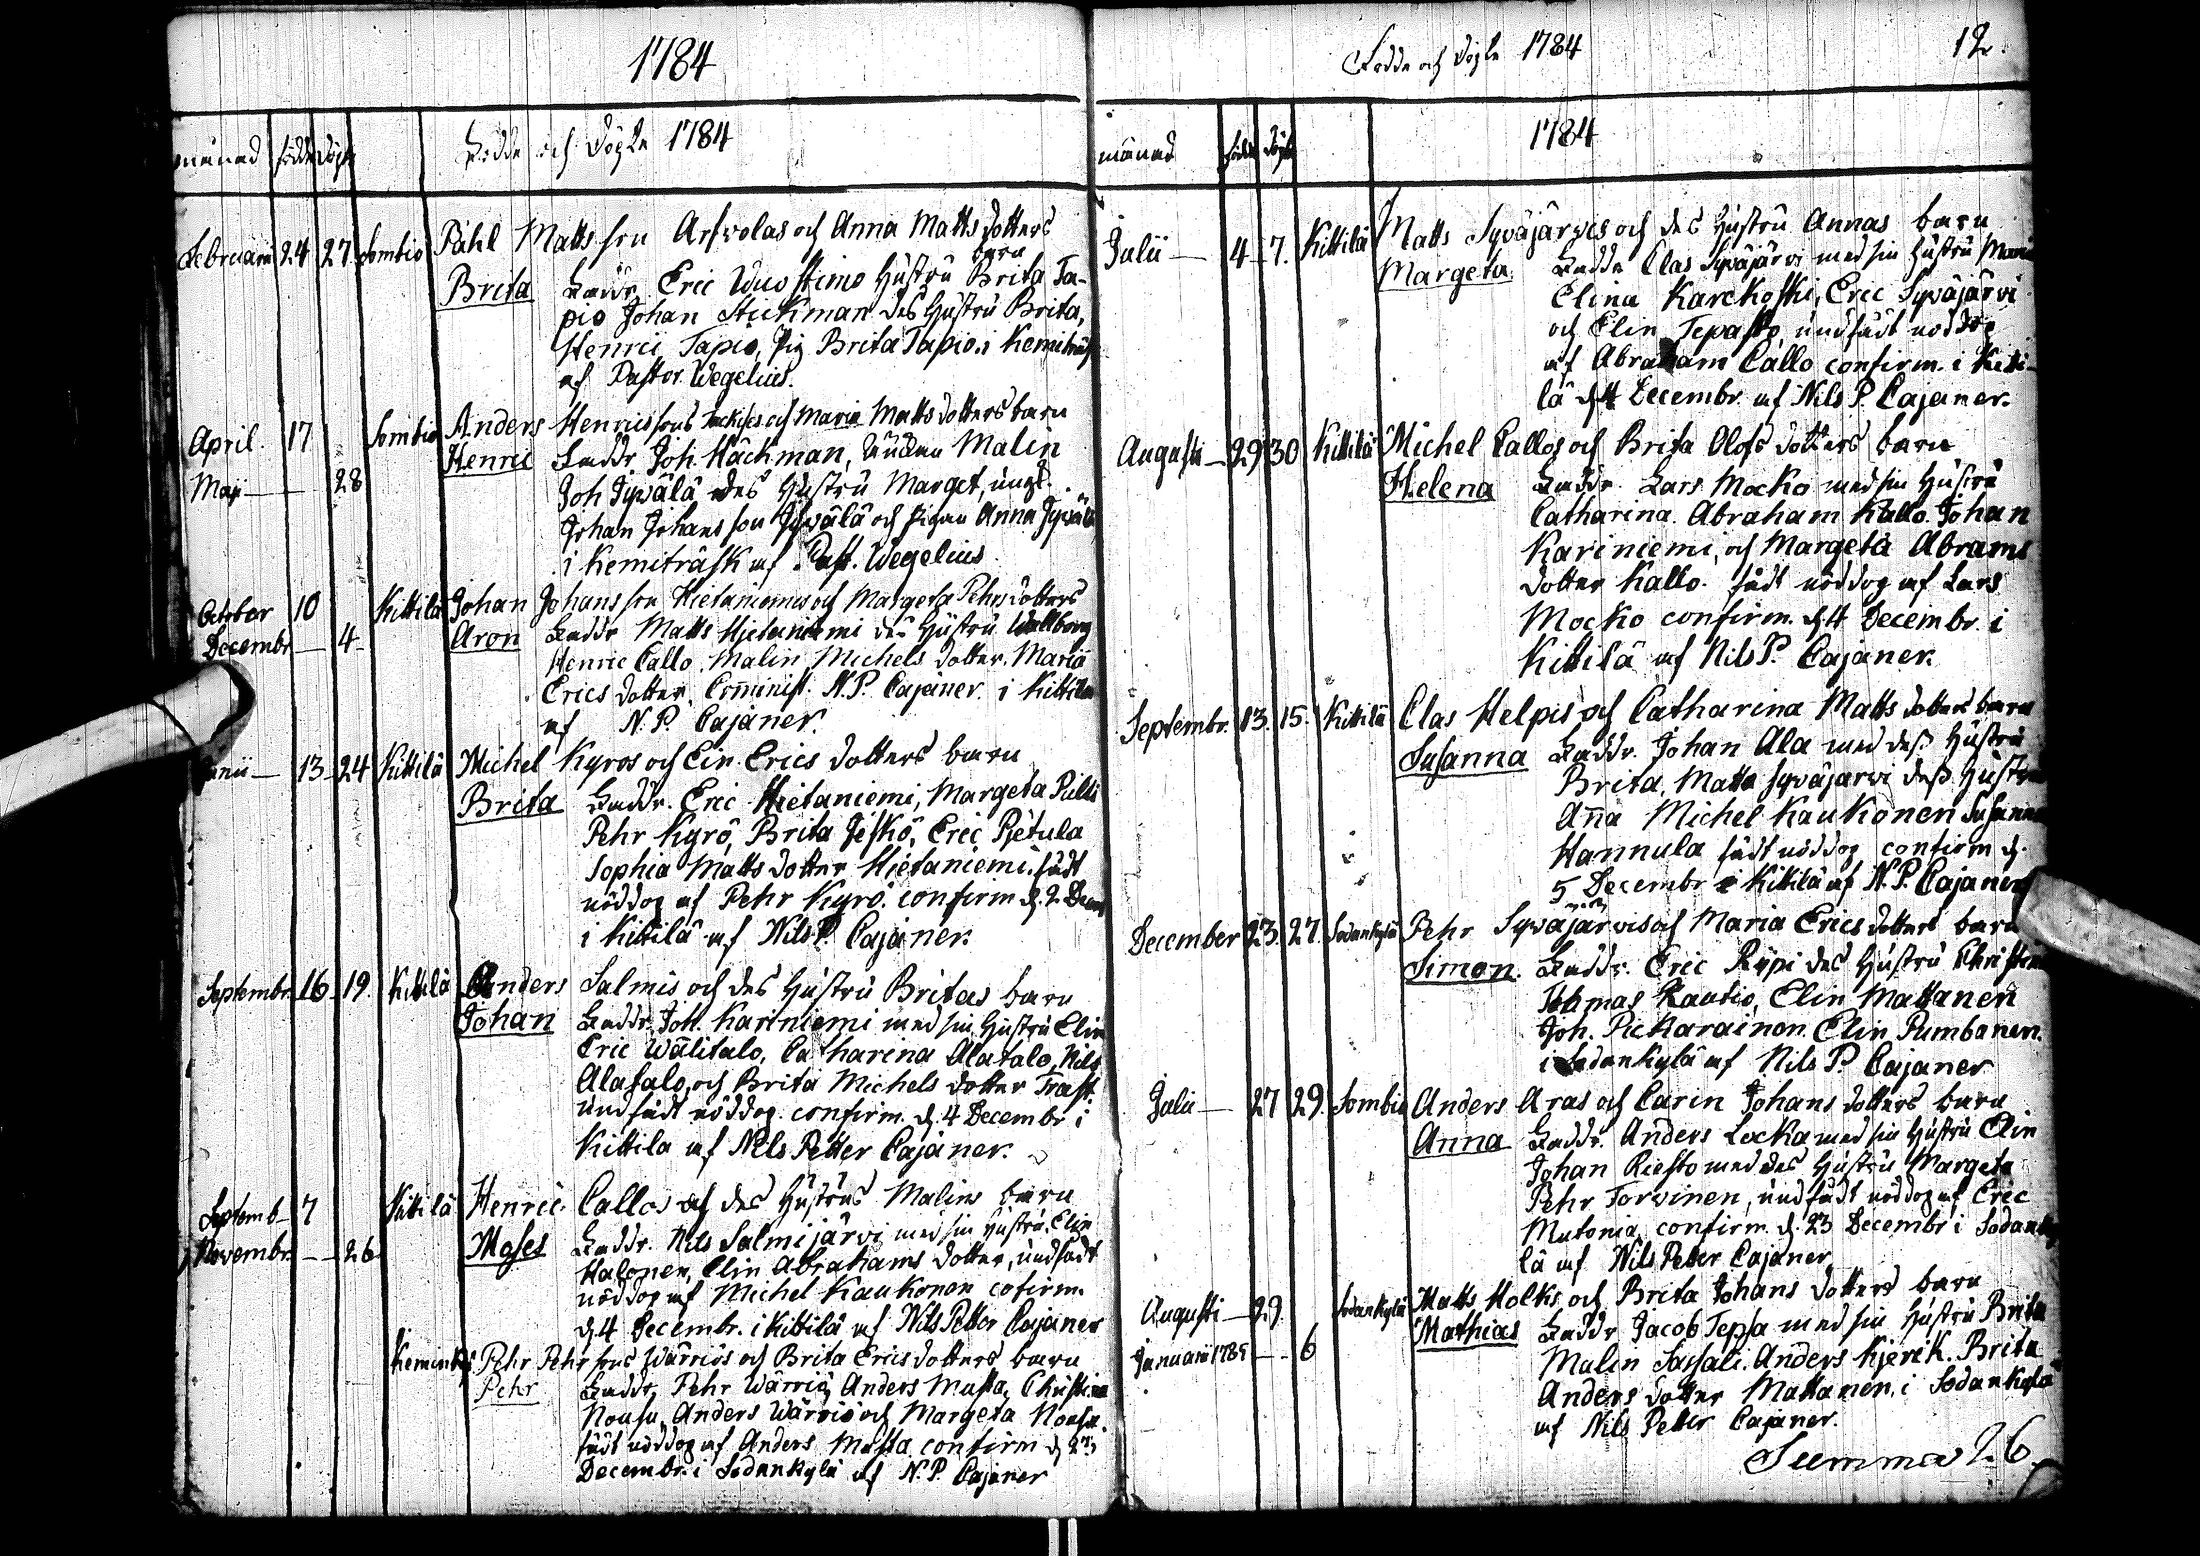 1784
månad födde döpte Födde och Döpte 1784
Februarii 24 27 Sombio Påhl Matts son Arfwolas och Anna Matts dotters
barn
Brita Faddr. Eric Wuostimo Hustru Brita Ta-
pio Johan Stickman des Hustru Brita,
Henric Tapio, Pig. Brita Tapio. i Kemiträsk
af Pastor Wegelius.
April. 17 Sombio Anders Henrics sons och Maria Matts dotters barn
Maji 28 Henric Faddr. Joh. Hächman, Malin
Joh Jywälä des Hustru Marget, ungk.
Johan Johans son Jywälä och Pigan Anna Jywälä
i Kemiträsk af Past. Wegelius
October 10 Kittilä Johan Johans son Hietaniemis och Margeta Pehrs dotters
Decembr. 4 Aron Faddr Matts Hietaniemi des Hustru Wallborg
Henric Callo, Malin Michels dotter. Maria
Erics dotter, Com̄inist. N.P. Cajaner i Kittilä
af N.P. Cajaner.
Junii 13 24 Kittilä Michel Kyros och Elin Erics dotters barn
Brita Faddr. Eric Hietaniemi, Margeta Pulli
Pehr Kyrö, Brita Jeskö, Eric Pjetula
Sophia Matts dotter Hietaniemi. fådt
nöddop af Pehr Kyrö. confirm d. 2 Decem
i Kittilä af Nils P. Cajaner.
Septembr. 16 19. Kittilä Anders Salmis och des Hustru Britas barn
Johan Faddr. Joh. Kariniemi med sin Hustru Elin
Eric Wälitalo, Catharina Alatalo, Nils
Alatalo, och Brita Michels dotter Trast.
undfådt nöddop. confirm. d. 4 Decembr i
Kittila af Nils Petter Cajaner.
Septemb 7 Kittilä Henric Callos och des Hustrus Malins barn
Novembr. 26 Moses Faddr. Nils Salmijärvi med sin Hustru. Elin
Halonen, Elin Abrahams dotter, undfådt
nöddop af Michel Kaukonen cofirm.
d. 4 Decembr. i Kittilä af Nils Petter Cajaner
Pehr Pehrsons Wärriös och Brita Erics dotters barn
Pehr Faddr. Pehr Wärriö, Anders Musta, Christina
Nousu, Anders Wärriö och Margeta Nousu.
fådt nöddop af Anders Musta confirm d 23
Decembr. i Sodankylä af N.P. Cajaner
Födde och Döpte 1784 12.
månad födde döpte 1784
Julii 4 7. Kittilä Matts Sywäjärwis och des Hustru Annas barn
Margeta. Faddr Clas Sywäjärvi med sin Hustru Maria
Elina Karckoski, Eric Sywäjärvi
och Elin Tepasto undfådt nöddop
af Abraham Callo confirm. i Kitti-
lä d 4 Decembr. af Nils P. Cajaner.
Augusti 29 30 Kittilä Michel Callos och Brita Olofs dotters barn
Helena Faddr. Lars Mocko med sin Hustru
Catharina. Abraham Kallo. Johan
Kariniemi, och Margeta Abrams
dotter Kallo. fådt nöddop af Lars
Mocko confirm. d. 4 Decembr. i
Kittilä af Nils P. Cajaner.
Septembr. 13. 15. Kittilä Clas Helpis och Catharina Matts dotters barn
Susanna Faddr. Johan Ala med dess Hustru
Brita, Matts Sywäjarvi dess Hustru
An̄a Michel Kaukonen Susanna
Hannula fådt nöddop confirm d.
5 Decembr i Kittilä af N.P. Cajaner
December 23. 27. Sodankylä Pehr Sywäjärwis och Maria Erics dotters barn
Simon. Faddr. Eric Riipi des Hustru Christina
Thomas Rautio, Elin Mattanen
Joh. Pickarainen. Elin Pumbanen.
i Sodankylä af Nils P. Cajaner
Julii 27 29. Sombio Anders Aras och Carin Johans dotters barn
Anna Faddr. Anders Locka med sin Hustru Elin
Johan Riesto med des Hustru Margeta
Pehr Torwinen, undfådt nöddop af Eric
Mutenia, confirm. d. 23 Decembr i Sodanky
lä af Nils Peter Cajaner
Augusti 29. Sodankylä Matts Holks och Brita Johans dotters barn
Januarii 1785 6 Mathias Faddr Jacob Tepsa med sin Hustru Brita
Malin Sassali. Anders Kjerik. Brita
Anders dotter Mattanen, i Sodankylä
af Nils Petter Cajaner.
Summa 26.